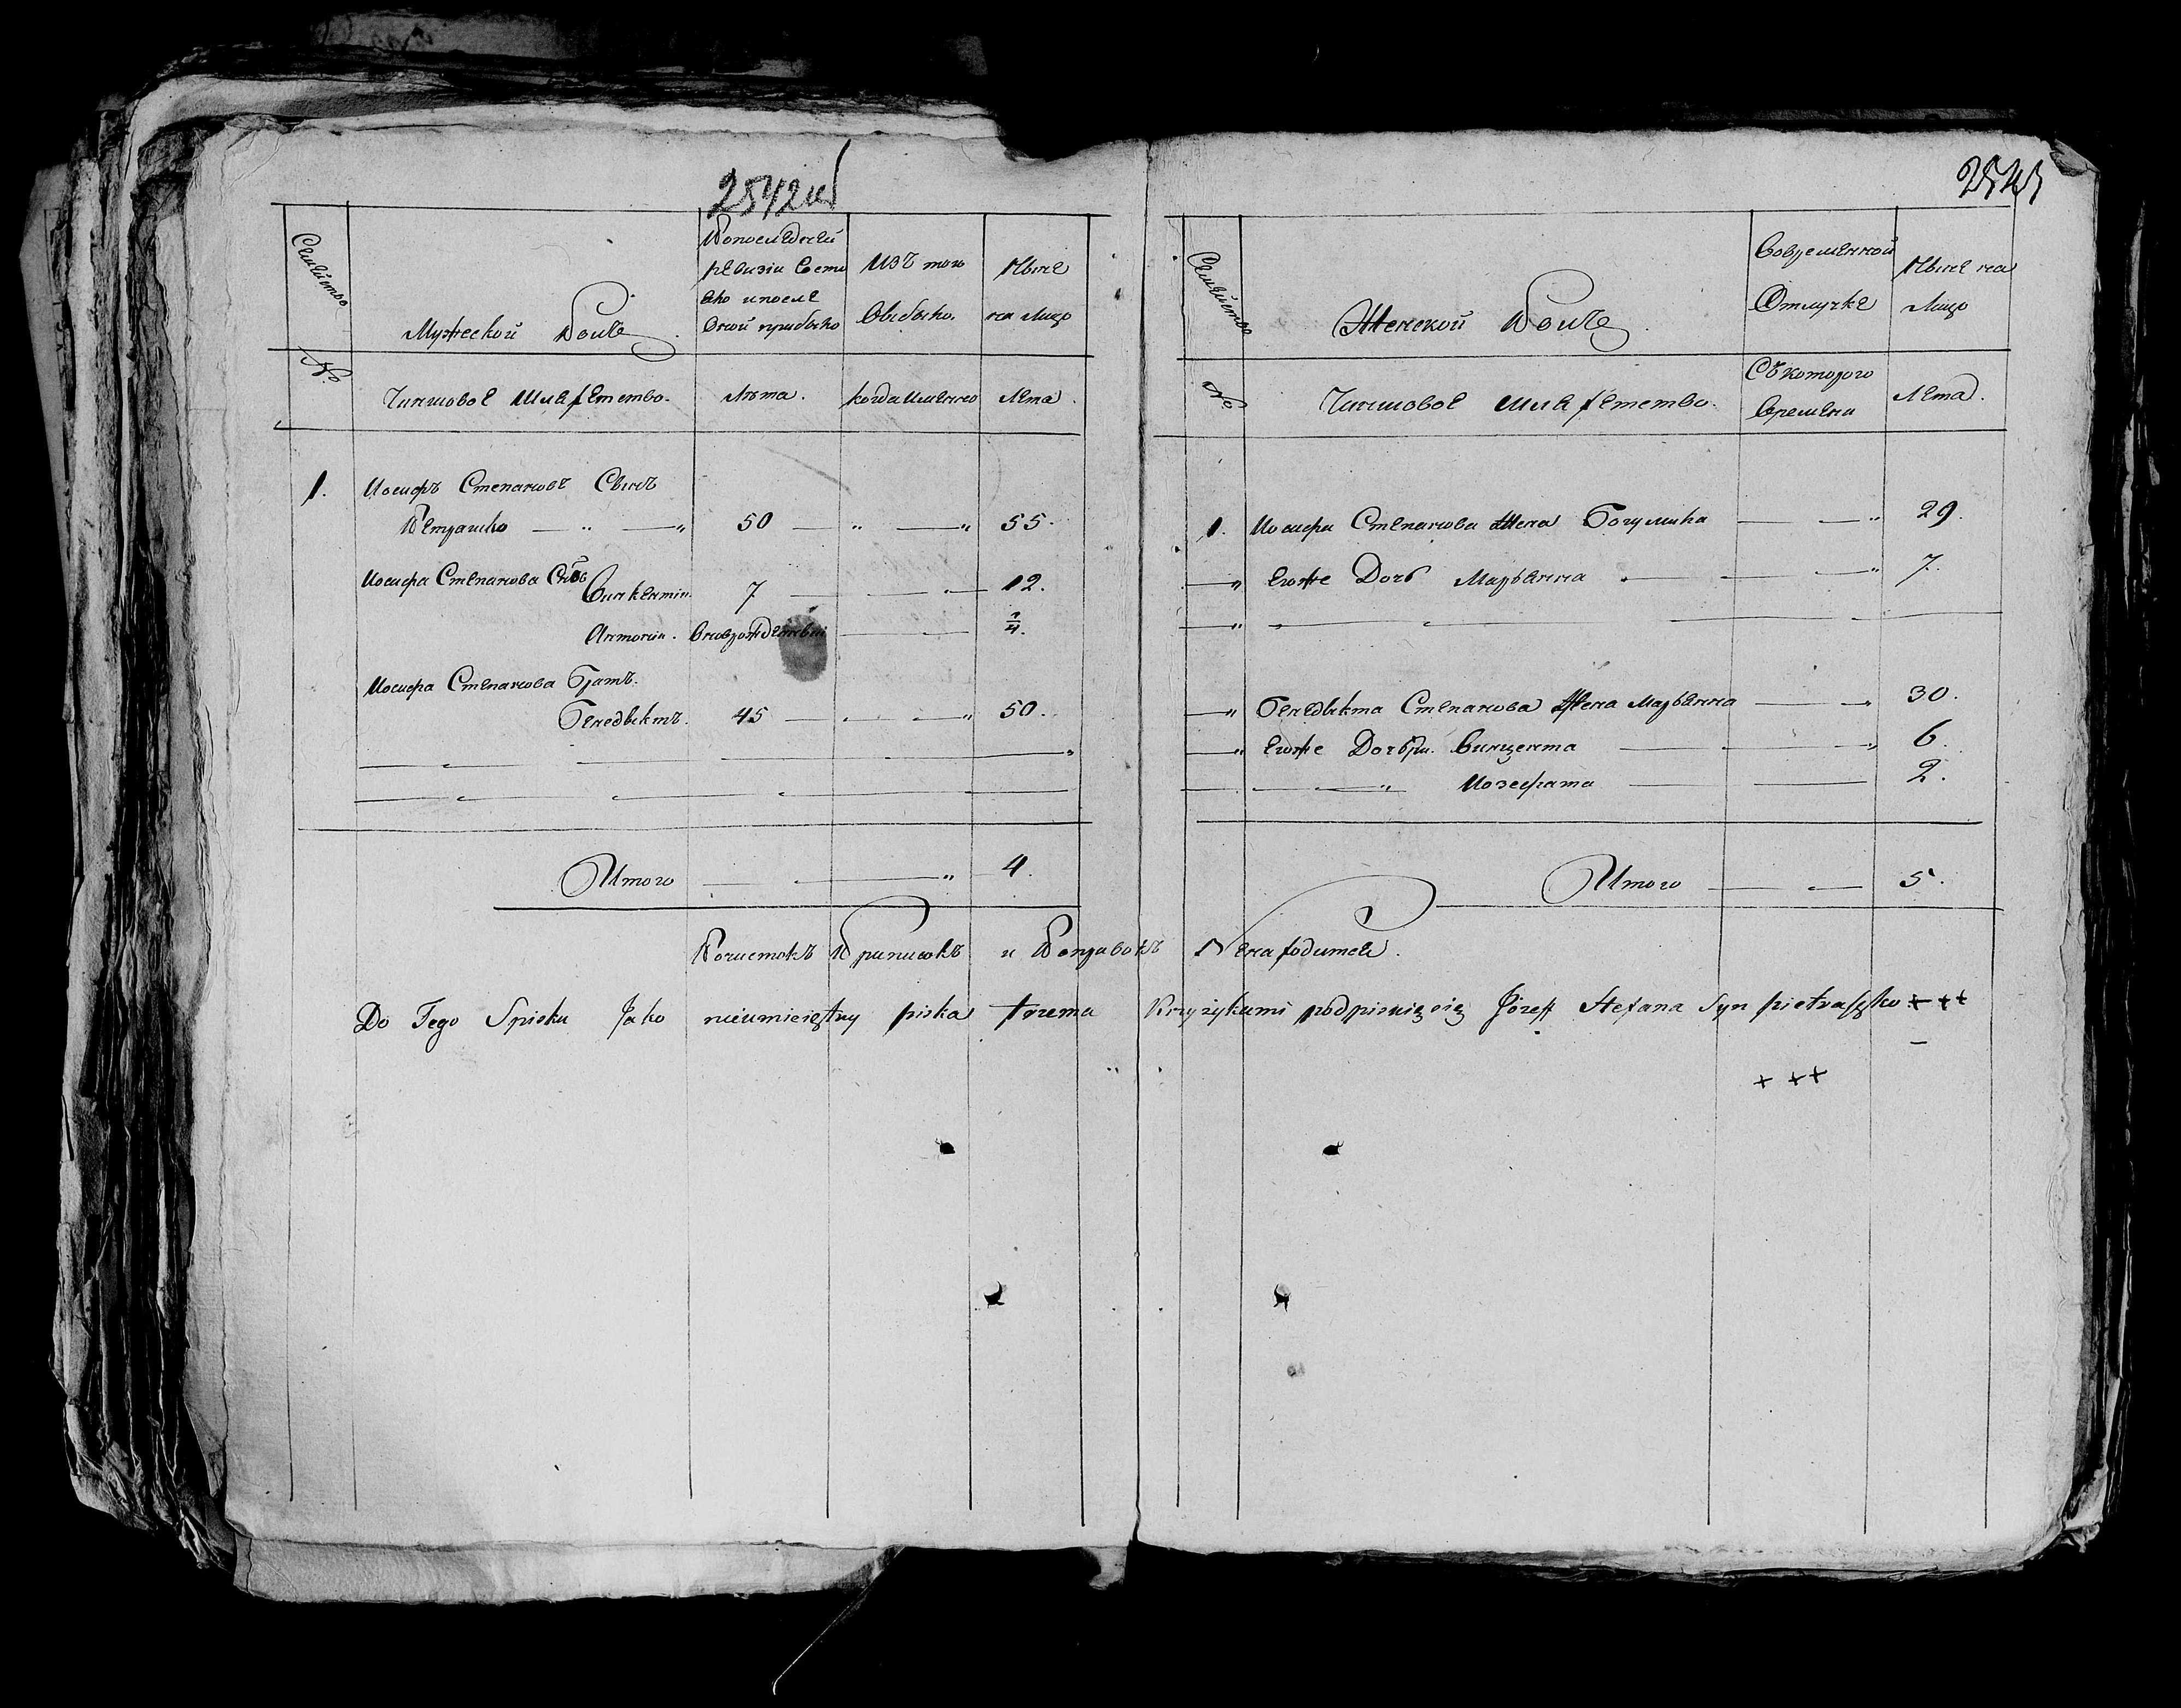 2542
2545
Семейство
№
Мужеской Полъ
По последней
ревизіи состо
яло и после
оной прибыло
Изъ того
Выбыло.
Ныне
на лицо
Чиншовое Шляхетство.
Лѣта.
когда именно
Лета.
1. Иосифъ Степановъ Сынъ
Петрашко — „ — „ 50 — „ — „ 55.
Иосифа Степанова Снвъ
Викентій. 7 — — „ — 12.
Антоній. вновь рожденный — — 1/4.
Иосифа Степанова Братъ.
Бенедыктъ. 45 — „ — „ 50.
Итого — „ 4.
Семейство
№
Женской Полъ
Во временной
Отлучке
Ныне на
Лицо
Чиншовое Шляхетство.
Съ которого
времени
Лета.
1. Иосифа Степанова Жена Богумила — — „ 29.
— „ Егоже Дочь Марьянна — — „ 7.
— „ Бенедыкта Степанова Жена Марьянна — „ 30.
— „ Егоже Дочѣри. Винцента — — „ 6.
— — „ Иозефата — — 2.
Итого — — 5.
Почистокъ Приписокъ и Поправокъ Ненаходится.
Do Tego Spisku Jako nieumieiętny piska trzema Krzyżykami podpisuię się Józeff Stefana Syn pietraszko + + +
+ + +